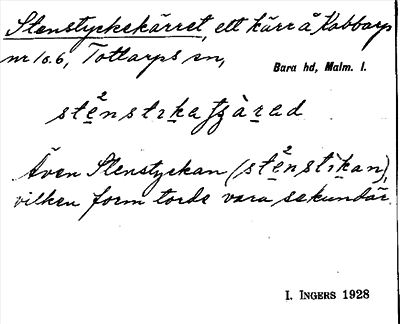 Stenstyckekärret, ett kärr å Kabbarp
nr 10.6, Tottarps sn,
Bara hd, Malm. l.
Även Stenstyckan (
vilken form torde vara sekundär.
I. INGERS 1928